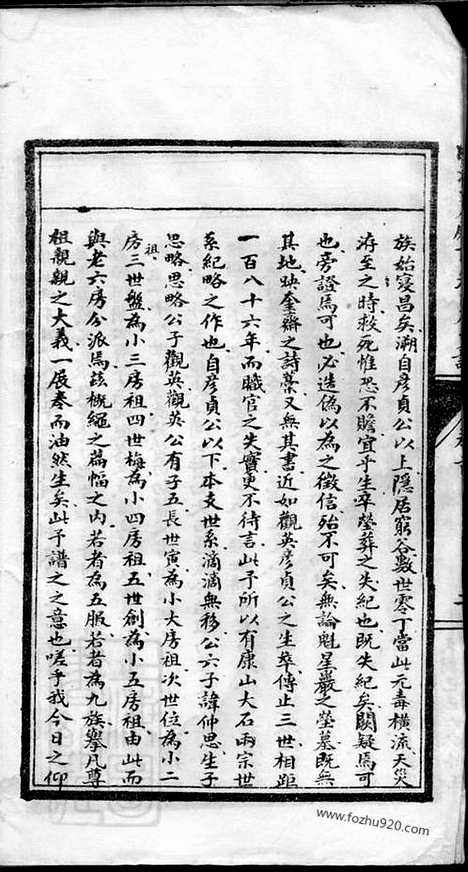 族始寖昌矣溯自彥貞公以上隱居窮谷數世零丁當此元毒橫流天災
洊至之時救死惟恐不贍宜乎生卒塋葬之失紀也既失紀矣闕疑焉可
也旁證焉可也必造偽以為之徵信殆不可矣無論魁星巖之塋墓既無
其地映奎齋之詩藁又無其書近如觀英彥貞公之生卒傳止三世相距
一百八十六年而職官之失實更不待言此予所以有康山大石兩宗世
系紀略之作也自彥貞公以下本支世系滴滴無移公六子諱仲思生子
思略思略公子觀英觀英公有子五長世寅為小大房祖次世位為小二
房祖三世盤為小三房祖四世梅為小四房祖五世創為小五房祖由此而
與老六房分派焉茲概繩之篇幅之內若者為五服若者為九族舉凡尊
祖親親之大義一展卷而油然生矣此予譜之之意也嗟乎我今日之仰
www.fozhu920.com